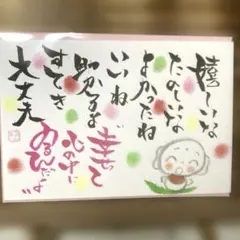 嬉しいな
たのしいな
よかったね
いいね
助かるよ
すてき
大丈夫
幸せって
心の中に
あるんだよ